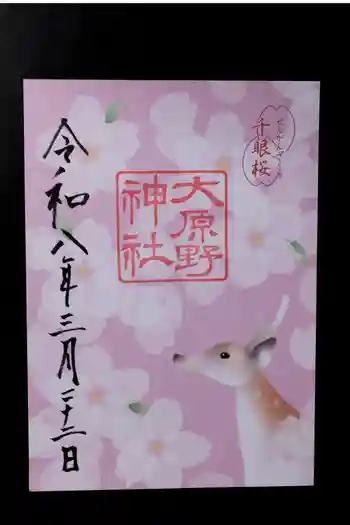 せんがんざくら
千眼桜
大原野
神社
令和八年三月二十二日